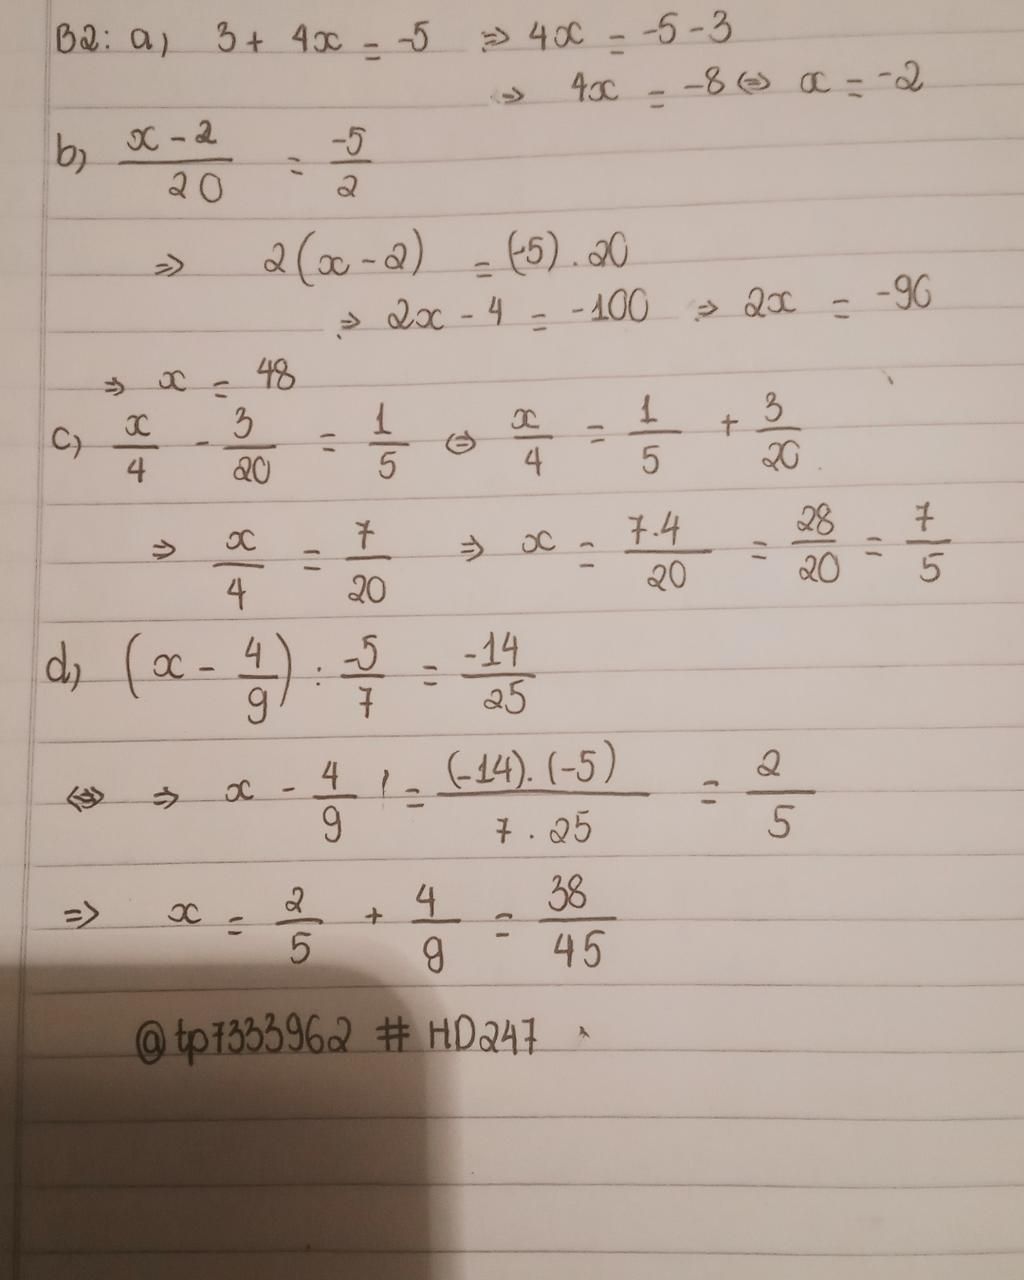 B2: a, 3 + 4x = -5 ⇒ 4x = -5 - 3
⇒ 4x = -8 ⇔ x = -2
b, \frac{x-2}{20} = \frac{-5}{2}
⇒ 2(x-2) = (-5).20
⇒ 2x - 4 = -100 ⇒ 2x = -96
⇒ x = 48
c, \frac{x}{4} - \frac{3}{20} = \frac{1}{5} ⇔ \frac{x}{4} = \frac{1}{5} + \frac{3}{20}
⇒ \frac{x}{4} = \frac{7}{20} ⇒ x = \frac{7.4}{20} = \frac{28}{20} = \frac{7}{5}
d, (x - \frac{4}{9}) : \frac{-5}{7} = \frac{-14}{25}
⇒ x - \frac{4}{9} = \frac{(-14).(-5)}{7.25} = \frac{2}{5}
⇒ x = \frac{2}{5} + \frac{4}{9} = \frac{38}{45}
@tp7333962 # HD247